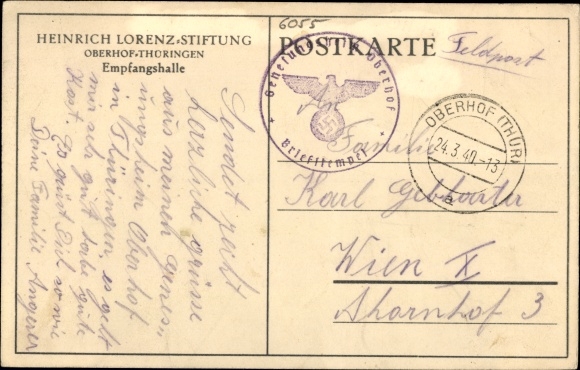 6055
HEINRICH LORENZ-STIFTUNG
OBERHOF-THÜRINGEN
Empfangshalle
POSTKARTE
Feldpost
Genesungsheim Oberhof
* Briefstempel *
OBERHOF (THÜR)
24.3.40.-13
a
An
Familie
Karl
Wien X
Ahornhof 3
Sendet
herzliche Grüsse
aus meinem Genes-
ungsheim Oberhof
in Thüringen, es geht
mir sehr gut habe gute
Kost. Es grüsst Euch
Deine Familie Angerer